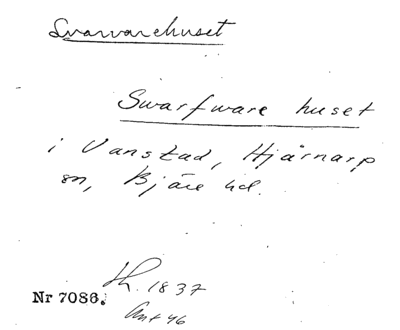 Svarvarehuset
Swarfware huset
i Vanstad, Hjärnarp
sn, Bjäre hd.
Nr 7086.
Lh. 1837
Ant 46